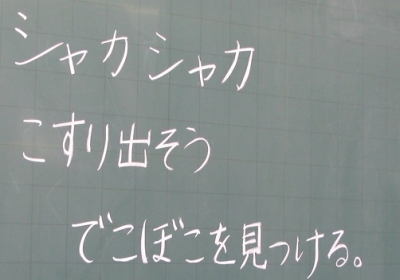 シャカシャカ
こすり出そう
でこぼこを見つける。